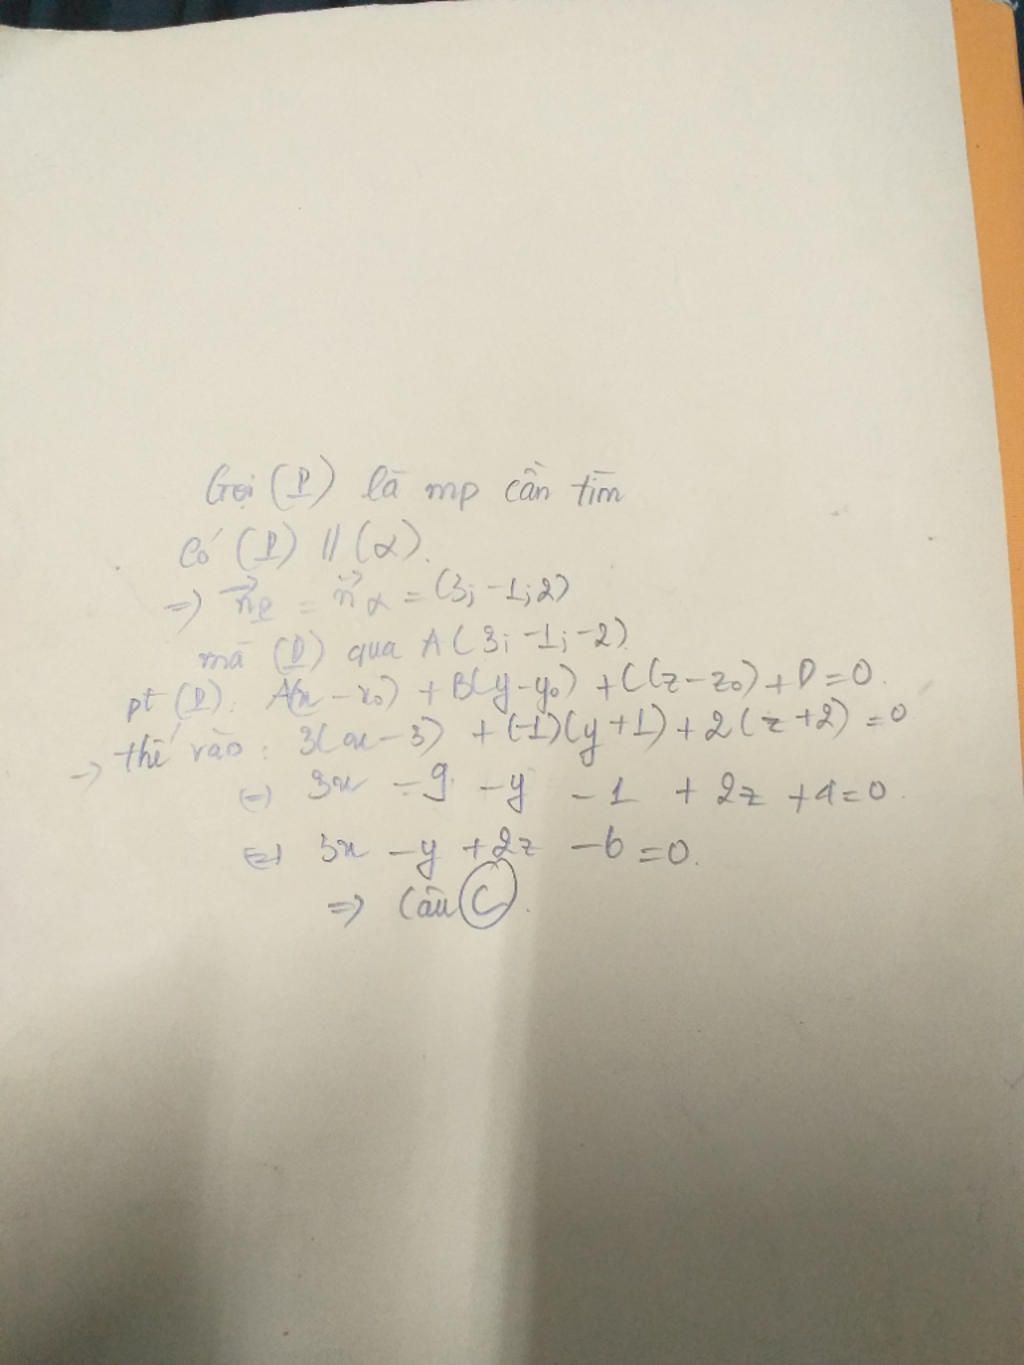 Gọi (P) là mp cần tìm
Có (P) // (α).
=> n⃗P = n⃗α = (3; -1; 2)
mà (P) qua A(3; -1; -2)
pt (P): A(x - x₀) + B(y - y₀) + C(z - z₀) + D = 0.
-> thế vào: 3(x - 3) + (-1)(y + 1) + 2(z + 2) = 0
(=) 3x - 9 - y - 1 + 2z + 4 = 0.
(=) 3x - y + 2z - 6 = 0.
=> Câu C.